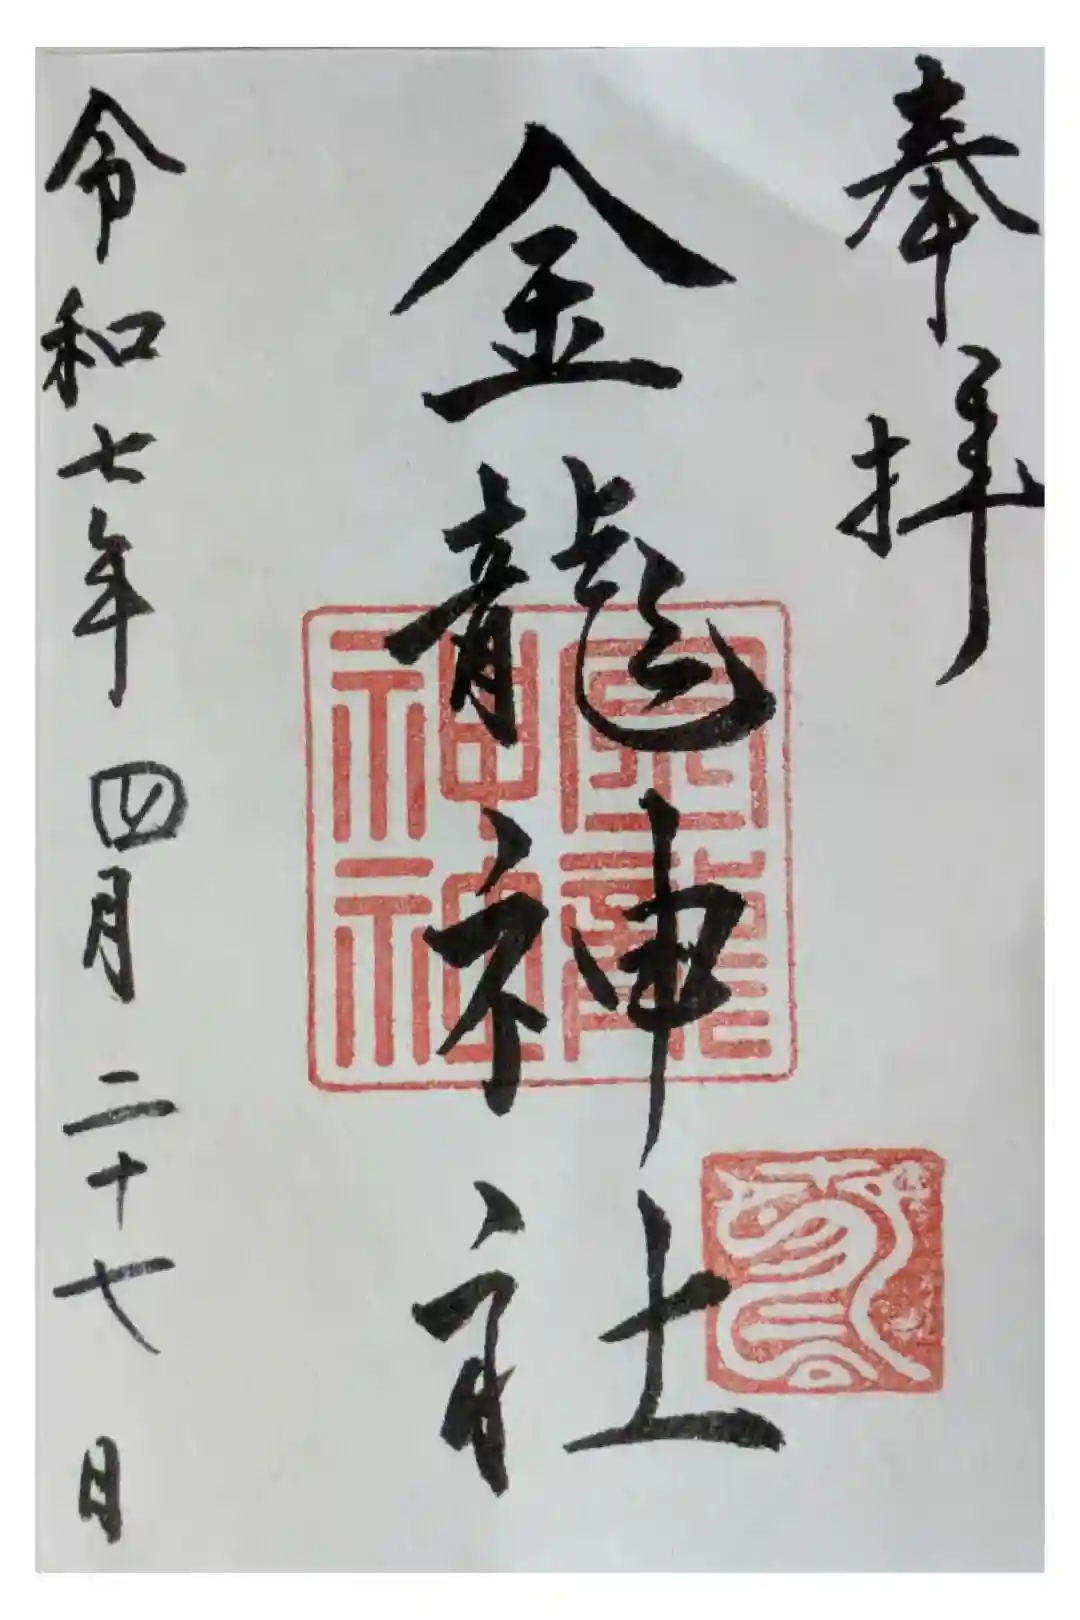 奉拝
金龍神社
金龍
神社
令和七年四月二十七日